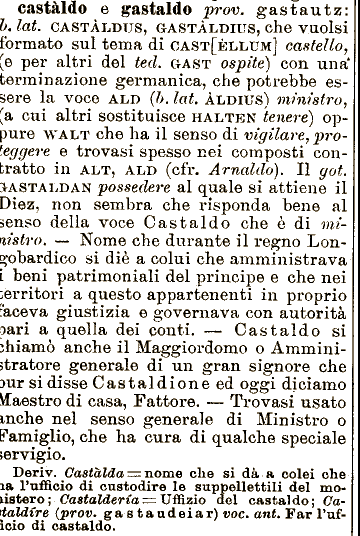 castàldo e gastaldo prov. gastautz:
b. lat. CASTÀLDUS, GASTÀLDIUS, che vuolsi
formato sul tema di CAST[ÈLLUM] castello,
(o per altri del ted. GAST ospite) con una
terminazione germanica, che potrebbe es-
sere la voce ALD (b. lat. ÀLDIUS) ministro,
(a cui altri sostituisce HALTEN tenere) op-
pure WALT che ha il senso di vigilare, pro-
teggere e trovasi spesso nei composti con-
tratto in ALT, ALD (cfr. Arnaldo). Il got.
GASTALDAN possedere al quale si attiene il
Diez, non sembra che risponda bene al
senso della voce Castaldo che è di mi-
nistro. — Nome che durante il regno Lon-
gobardico si diè a colui che amministrava
i beni patrimoniali del principe e che nei
territori a questo appartenenti in proprio
faceva giustizia e governava con autorità
pari a quella dei conti. — Castaldo si
chiamò anche il Maggiordomo o Ammini-
stratore generale di un gran signore che
pur si disse Castaldione ed oggi diciamo
Maestro di casa, Fattore. — Trovasi usato
anche nel senso generale di Ministro o
Famiglio, che ha cura di qualche speciale
servigio.
Deriv. Castàlda = nome che si dà a colei che
ha l'ufficio di custodire le suppellettili del mo-
nistero; Castalderia = Uffizio del castaldo; Ca-
staldíre (prov. gastaudeiar) voc. ant. Far l'uf-
ficio di castaldo.